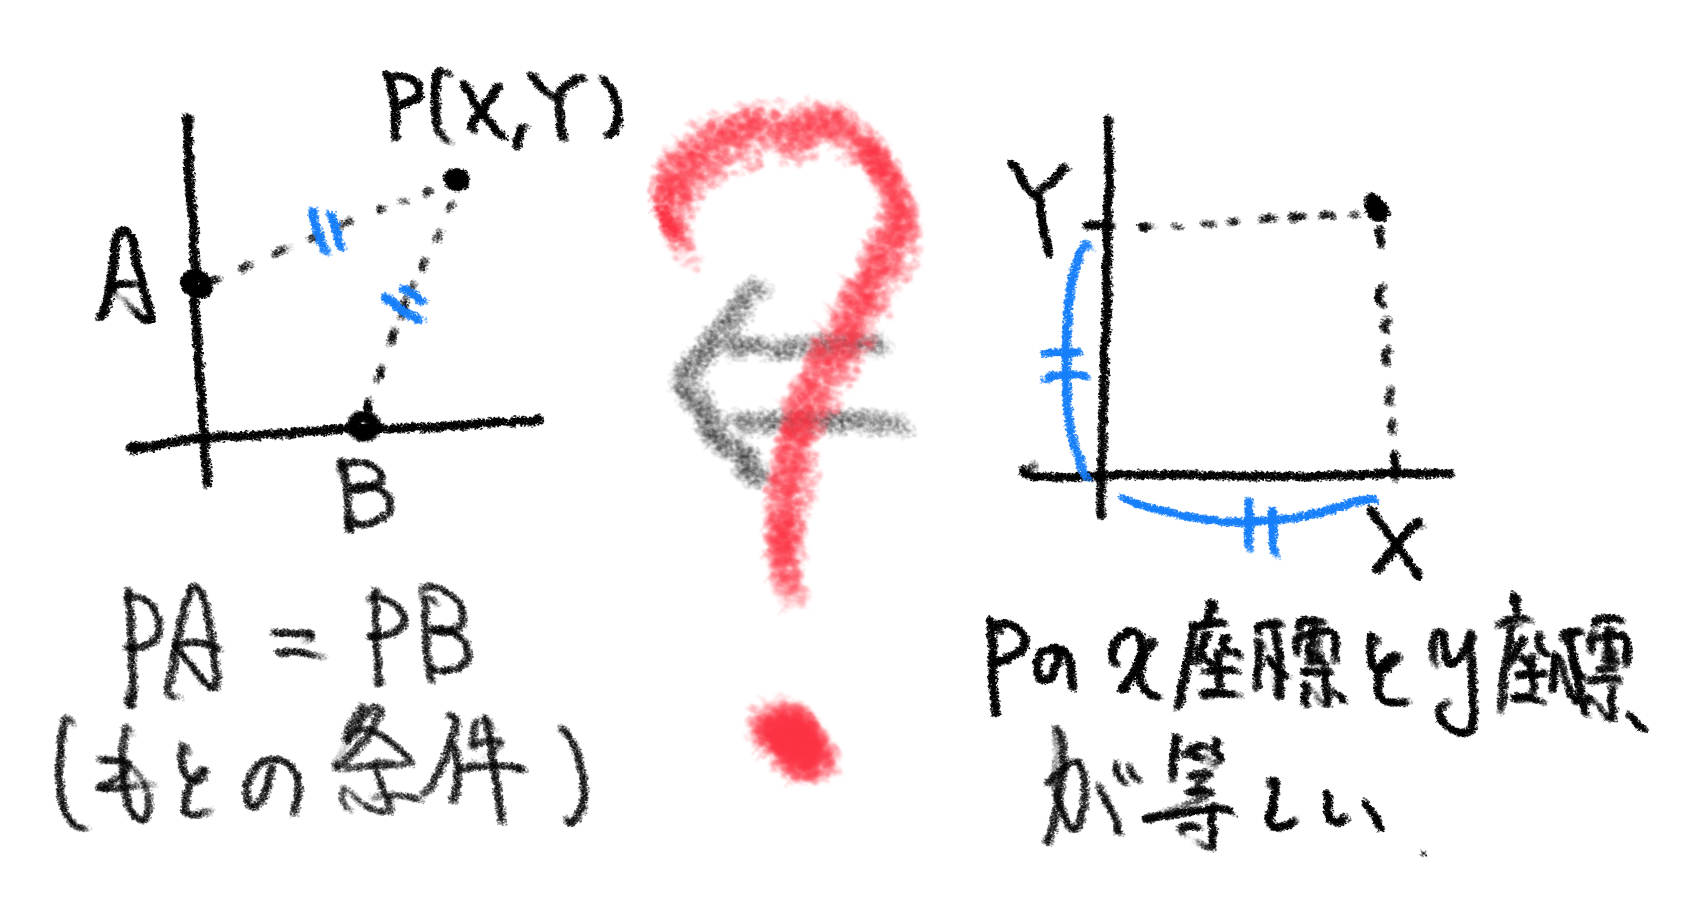 P(X,Y)
A
B
PA = PB
(もとの条件)
?
Y
X
Pのx座標とy座標
が等しい